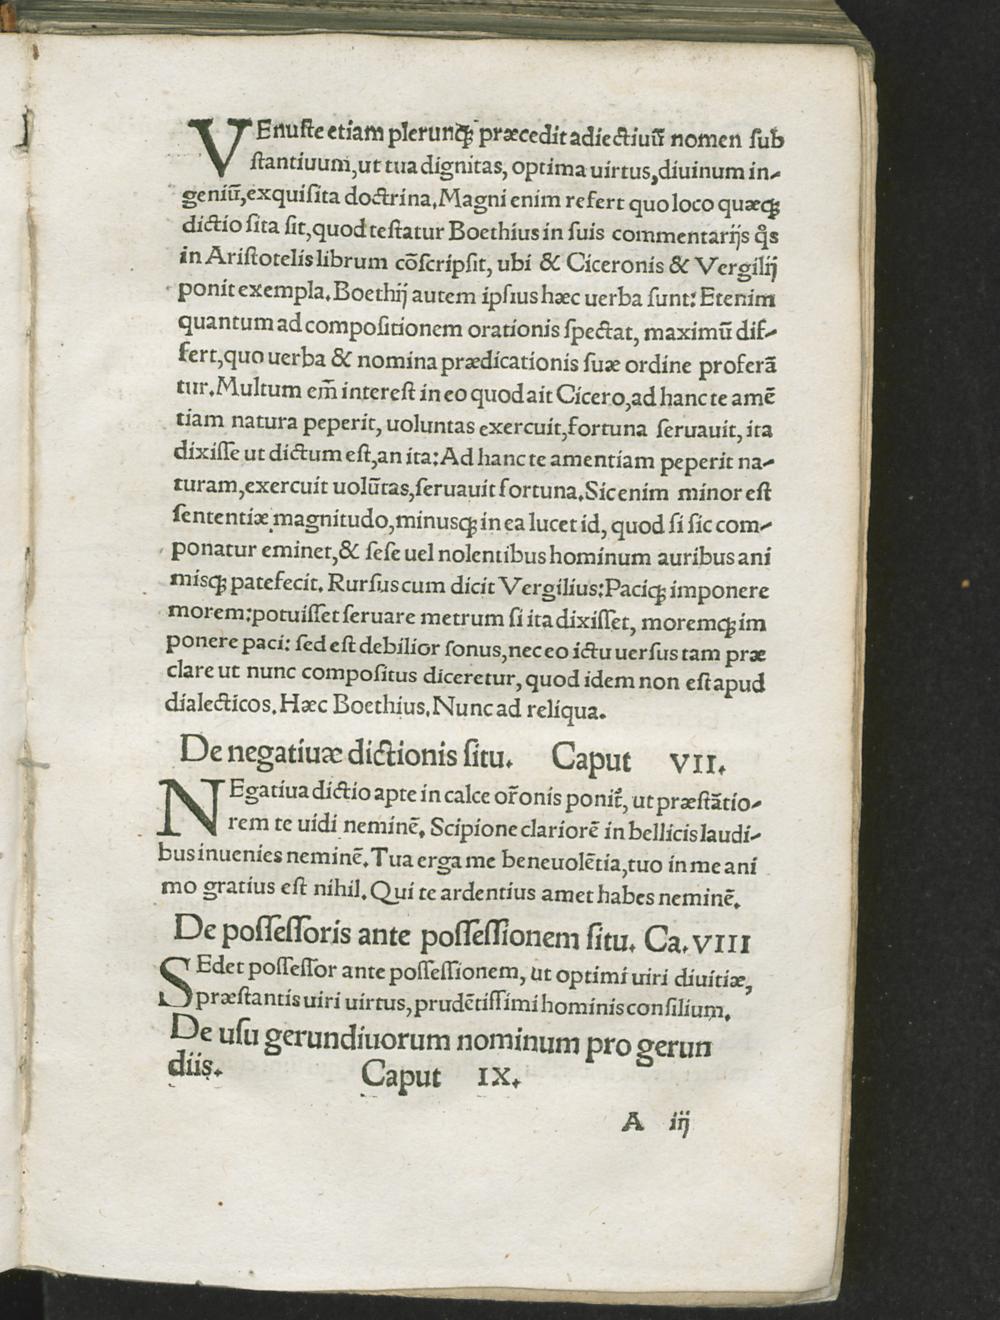 VEnuſte etiam plerunqꝫ præcedit adiectiuū nomen ſub
ſtantiuum, ut tua dignitas, optima uirtus, diuinum in-
geniū, exquiſita doctrina. Magni enim refert quo loco quæqꝫ
dictio ſita ſit, quod teſtatur Boethius in ſuis commentarijs q̊s
in Ariſtotelis librum cōſcripſit, ubi & Ciceronis & Vergilij
ponit exempla. Boethij autem ipſius hæc uerba ſunt: Etenim
quantum ad compoſitionem orationis ſpectat, maximū dif-
fert, quo uerba & nomina prædicationis ſuæ ordine proferā
tur. Multum em̄ intereſt in eo quod ait Cicero, ad hanc te amē
tiam natura peperit, uoluntas exercuit, fortuna ſeruauit, ita
dixiſſe ut dictum eſt, an ita: Ad hanc te amentiam peperit na-
turam, exercuit uolūtas, ſeruauit fortuna. Sic enim minor eſt
ſententiæ magnitudo, minusqꝫ in ea lucet id, quod ſi ſic com-
ponatur eminet, & ſeſe uel nolentibus hominum auribus ani
misqꝫ patefecit. Rurſus cum dicit Vergilius: Paciqꝫ imponere
morem: potuiſſet ſeruare metrum ſi ita dixiſſet, moremqꝫ im
ponere paci: ſed eſt debilior ſonus, nec eo ictu uerſus tam præ
clare ut nunc compoſitus diceretur, quod idem non eſt apud
dialecticos. Hæc Boethius. Nunc ad reliqua.
De negatiuæ dictionis ſitu. Caput VII.
NEgatiua dictio apte in calce or̄onis ponit̄, ut præſtātio-
rem te uidi neminē. Scipione clariorē in bellicis laudi-
bus inuenies neminē. Tua erga me beneuolētia, tuo in me ani
mo gratius eſt nihil. Qui te ardentius amet habes neminē.
De poſſeſſoris ante poſſeſſionem ſitu. Ca. VIII
SEdet poſſeſſor ante poſſeſſionem, ut optimi uiri diuitiæ,
præſtantis uiri uirtus, prudētiſſimi hominis conſilium.
De uſu gerundiuorum nominum pro gerun
diis. Caput IX.
A iij